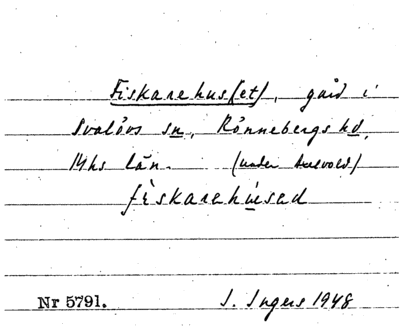 Fiskarehus(et), gård i
Svalövs sn, Rönnebergs hd,
Mhs län. (under Axelvold)
fìskarehúsed
Nr 5791. I. Ingers 1948